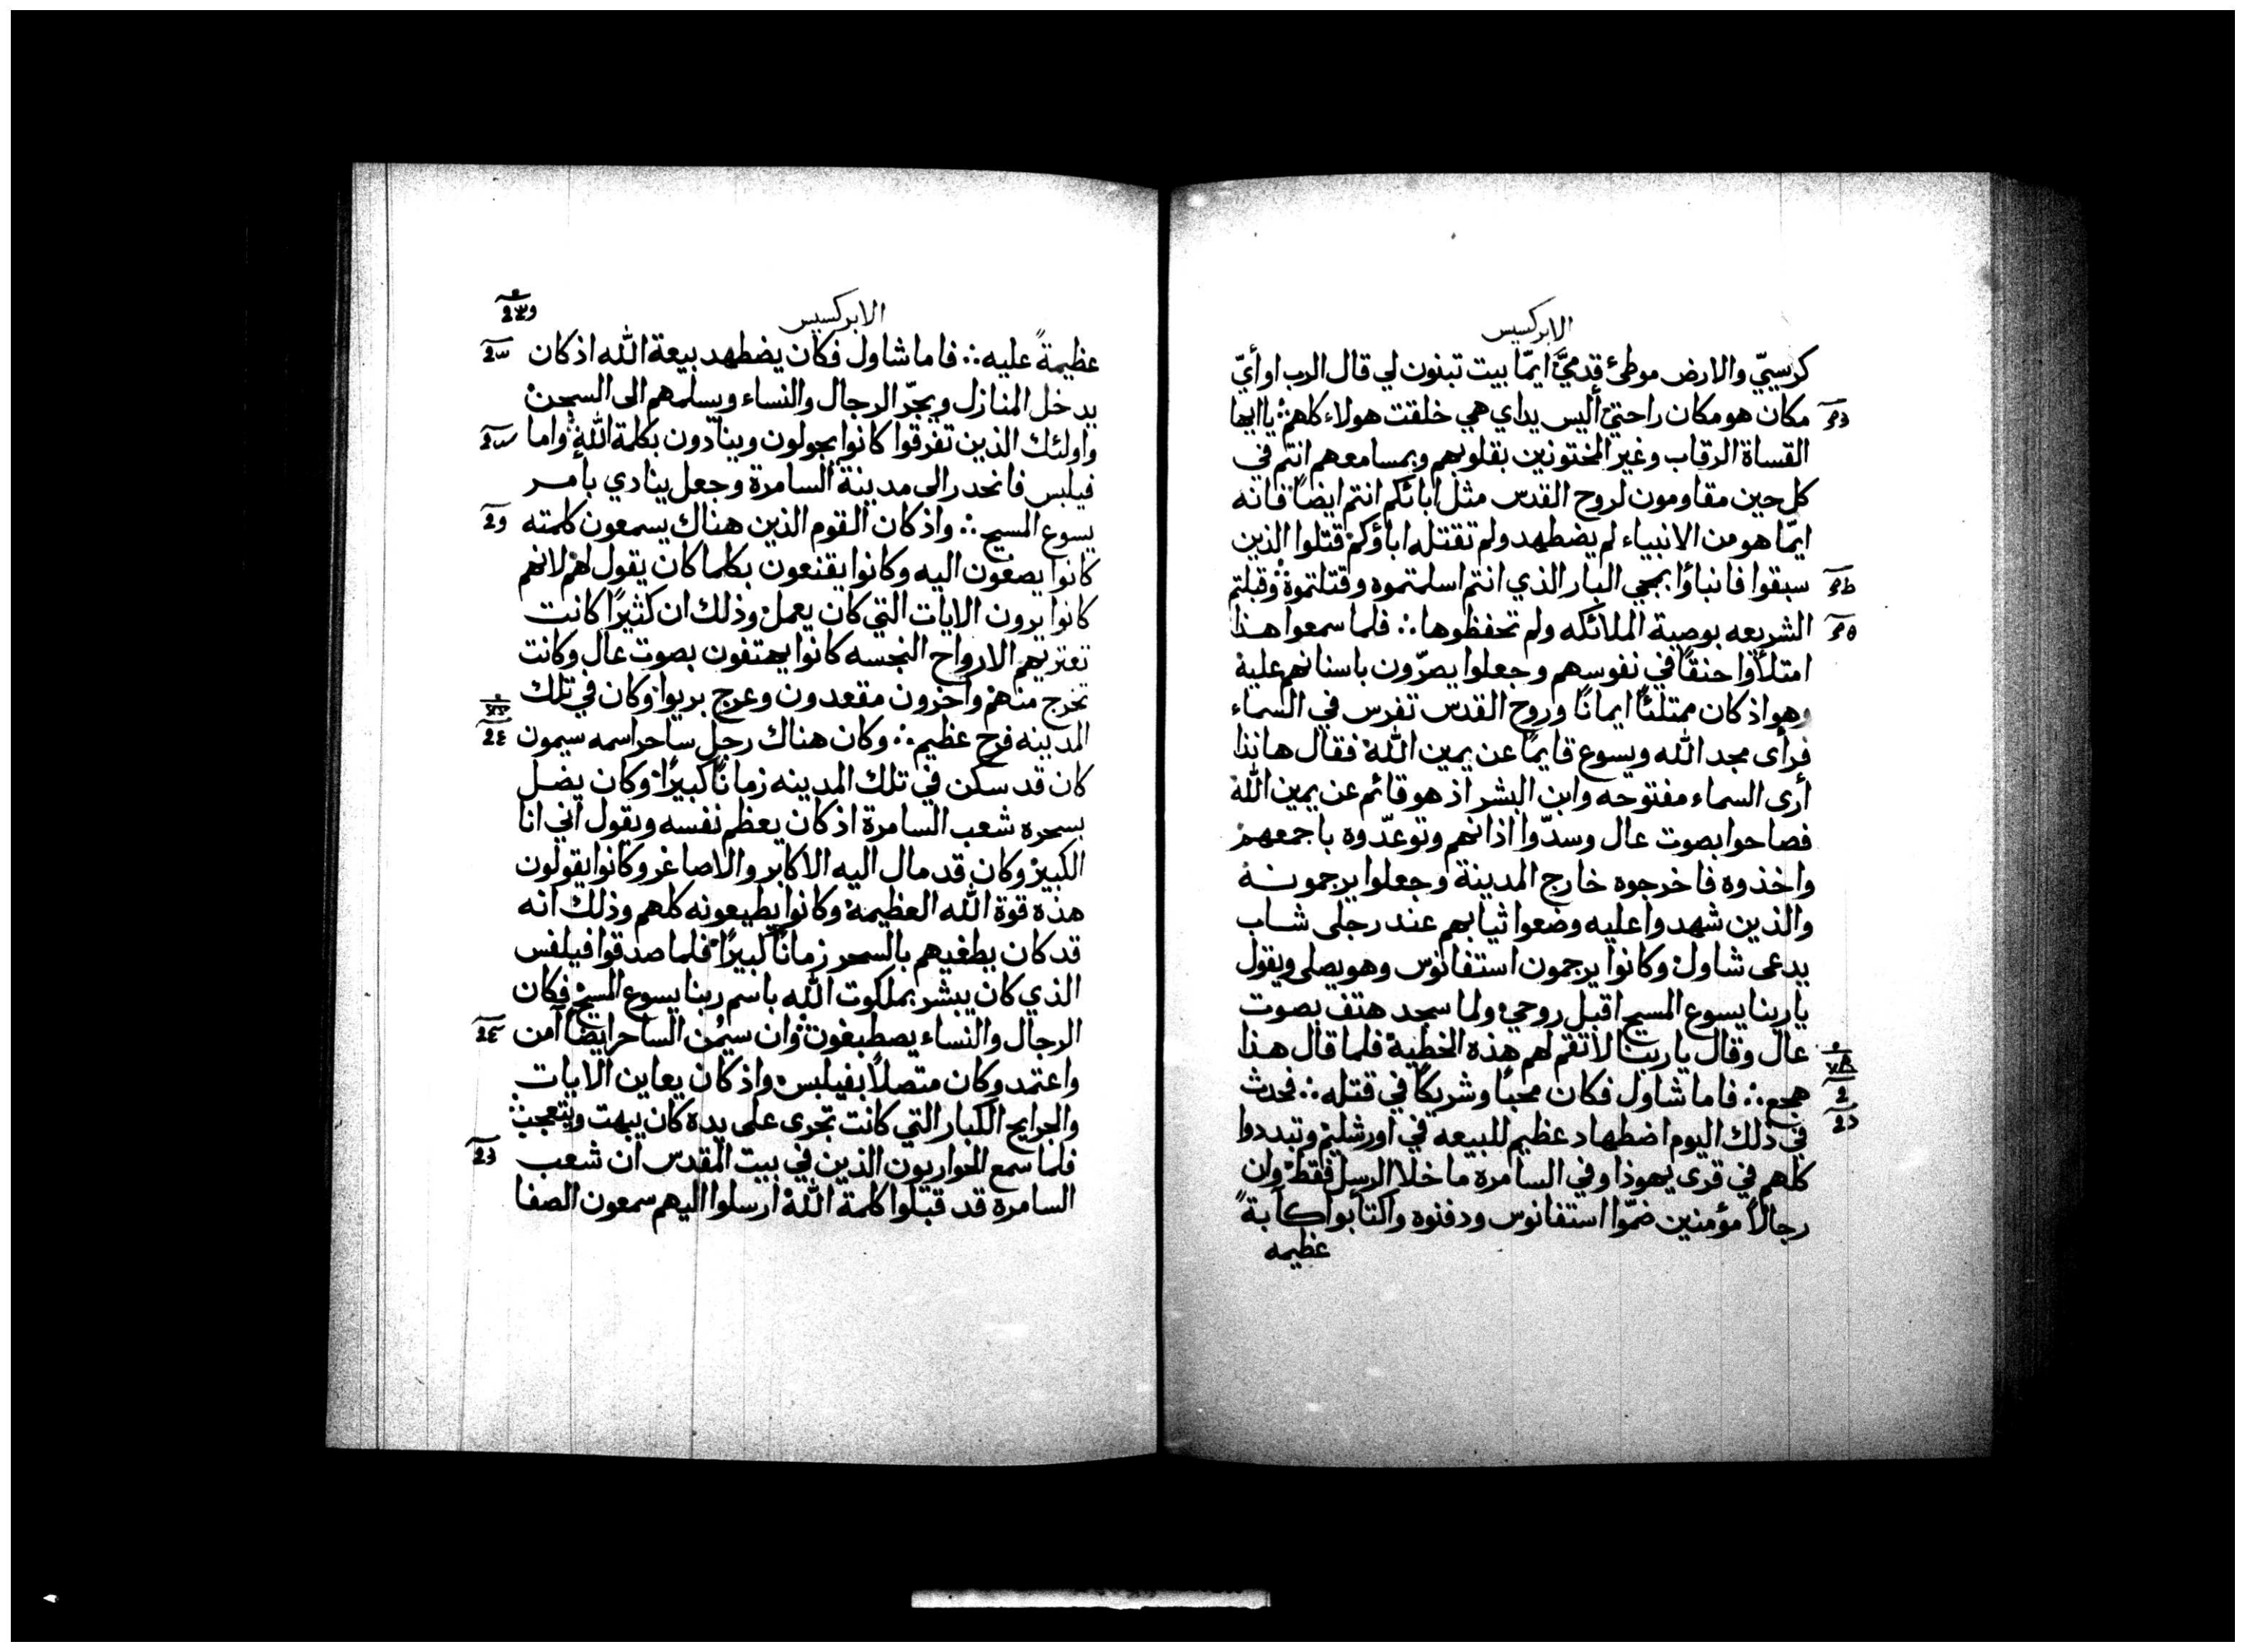 الابركسيس
كرسيّي والارض موطئ قدميَّ ايمّا بيت تبنون لي قال الرب او أيّ
مكان هو مكان راحتي أليس يداي هي خلقت هولاء كلهم ∴ يا ايها
القساة الرقاب وغير المختونين بقلوبهم وبمسامعهم انتم في
كل حين مقاومون لروح القدس مثل ابائكم انتم ايضاً فانه
ايمّا هو من الانبياء لم يضطهد ولم تقتله اباؤكم قتلوا الذين
سبقوا فانباؤا بمجي البار الذي انتم اسلمتموه وقتلتموة وقبلتم
الشريعه بوصية الملائكه ولم تحفظوها ∴ فلما سمعوا هذا
امتلأوا حنقاً في نفوسهم وجعلوا يصرّون باسنانهم علية
وهو اذ كان ممتلئاً ايمانًا وروح القدس تفرس في السماء
فرأى مجد الله ويسوع قايمًا عن يمين الله فقال هانذا
أرى السماء مفتوحه وابن البشر اذ هو قائم عن يمين الله
فصاحوا بصوت عال وسدّوا اذانهم وتوعدّوه باجمعهم
واخذوه فاخرجوه خارج المدينة وجعلوا يرجمونه
والذين شهدوا عليه وضعوا ثيابهم عند رجلى شاب
يدعى شاول وكانوا يرجمون استفانوس وهو يصلى ويقول
يا ربنا يسوع المسيح اقبل روحي ولما سجد هتف بصوت
عال وقال يا ربنا لا تقم لهم هذة الخطية فلما قال هذا
هجع ∴ فاما شاول فكان محبًا وشريكًا في قتله ∴ فحدث
في ذلك اليوم اضطهاد عظيم للبيعه في اورشليم وتبددوا
كلهم في قرى يهوذا وفي السامرة ما خلا الرسل فقط وان
رجالاً مؤمنين ضمّوا استفانوس ودفنوه واكتأبوا كآبةً
عظيمه
الابركسيس
عظيمةً عليه ∴ فاما شاول فكان يضطهد بيعة الله اذ كان
يدخل المنازل ويجرّ الرجال والنساء ويسلمهم الى السجن
واولئك الذين تفرقوا كانوا يجولون وينادون بكلمة الله واما
فيلبس فانحدر الى مدينة السامرة وجعل ينادي بامر
يسوع المسيح ∴ واذ كان القوم الذين هناك يسمعون كلمته
كانوا يصغون اليه وكانوا يقنعون بكلما كان يقول لهم لانهم
كانوا يرون الايات التي كان يعمل وذلك ان كثيرًا كانت
تعتريهم الارواح النجسه كانوا يهتفون بصوت عال وكانت
تخرج منهم واخرون مقعدون وعرج بريوا وكان في تلك
المدينه فرح عظيم ∴ وكان هناك رجل ساحر اسمه سيمون
كان قد سكن في تلك المدينه زمانًا كبيرًا وكان يضل
بسحره شعب السامرة اذ كان يعظم نفسه ويقول اني انا
الكبير وكان قد مال اليه الاكابر والاصاغر وكانوا يقولون
هذه قوة الله العظيمة وكانوا يطيعونه كلهم وذلك انه
قد كان يطغيهم بالسحر زمانًا كبيرًا فلما صدقوا فيلفس
الذي كان يبشر بملكوت الله باسم ربنا يسوع المسيح فكان
الرجال والنساء يصطبغون وان سيمُن الساحر ايضًا آمن
واعتمد وكان متصلاً بفيلبس واذ كان يعاين الايات
والجرايح الكبار التي كانت تجرى على يده كان يبهت ويتعجب
فلما سمع الحواريون الذين في بيت المقدس ان شعب
السامرة قد قبلوا كلمة الله ارسلوا اليهم سمعون الصفا